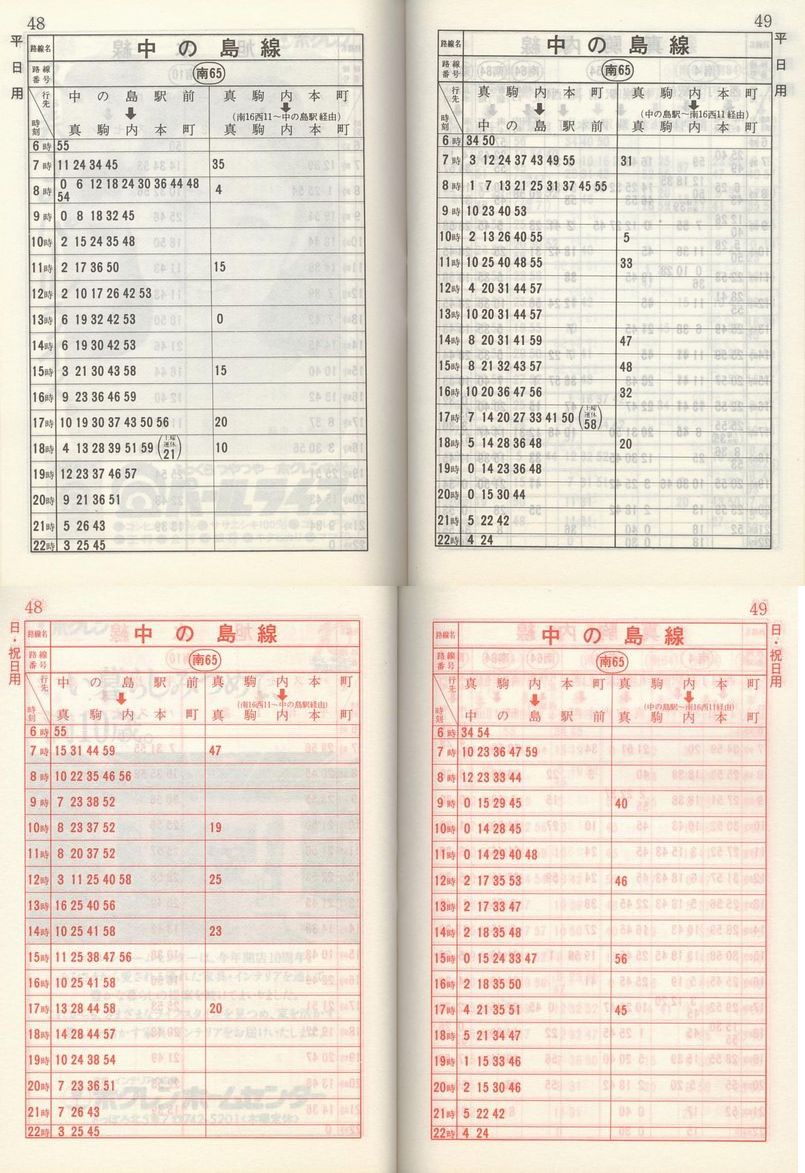 48
平日用
路線名 中の島線
路線番号 南65
行先 中の島駅前 真駒内本町
⬇ ⬇
(南16西11～中の島駅経由)
時刻 真駒内本町 真駒内本町
6時 55
7時 11 24 34 45 35
8時 0 6 12 18 24 30 36 44 48 4
54
9時 0 8 18 32 45
10時 2 15 24 35 48
11時 2 17 36 50 15
12時 2 10 17 26 42 53
13時 6 19 32 42 53 0
14時 6 19 30 42 53
15時 3 21 30 43 58 15
16時 9 23 36 46 59
17時 10 19 30 37 43 50 56 20
18時 4 13 28 39 51 59 (土曜運休21) 10
19時 12 23 37 46 57
20時 9 21 36 51
21時 5 26 43
22時 3 25 45
49
平日用
路線名 中の島線
路線番号 南65
行先 真駒内本町 真駒内本町
⬇ ⬇
(中の島駅～南16西11経由)
時刻 中の島駅前 真駒内本町
6時 34 50
7時 3 12 24 37 43 49 55 31
8時 1 7 13 21 25 31 37 45 55
9時 10 23 40 53
10時 2 13 26 40 55 5
11時 10 25 40 48 55 33
12時 4 20 31 44 57
13時 10 20 31 44 57
14時 8 20 31 41 59 47
15時 8 21 32 43 57 48
16時 10 20 36 47 56 32
17時 7 14 20 27 33 41 50 (土曜運休58)
18時 5 14 28 36 48 20
19時 0 14 23 36 48
20時 0 15 30 44
21時 5 22 42
22時 4 24
48
日・祝日用
路線名 中の島線
路線番号 南65
行先 中の島駅前 真駒内本町
⬇ ⬇
(南16西11～中の島駅経由)
時刻 真駒内本町 真駒内本町
6時 55
7時 15 31 44 59 47
8時 10 22 35 46 56
9時 7 23 38 52
10時 8 23 37 52 19
11時 8 20 37 52
12時 3 11 25 40 58 25
13時 16 25 40 56
14時 10 25 41 58 23
15時 11 25 38 47 56
16時 10 25 41 58
17時 13 28 44 58 20
18時 14 28 44 57
19時 10 24 38 54
20時 7 23 36 51
21時 7 26 43
22時 3 25 45
49
日・祝日用
路線名 中の島線
路線番号 南65
行先 真駒内本町 真駒内本町
⬇ ⬇
(中の島駅～南16西11経由)
時刻 中の島駅前 真駒内本町
6時 34 54
7時 10 23 36 47 59
8時 12 23 33 44
9時 0 15 29 45 40
10時 0 14 28 45
11時 0 14 29 40 48
12時 2 17 35 53 46
13時 2 17 33 47
14時 2 18 35 48
15時 0 15 24 33 47 56
16時 2 18 35 50
17時 4 21 35 51 45
18時 5 21 34 47
19時 1 15 33 46
20時 2 15 30 46
21時 5 22 42
22時 4 24